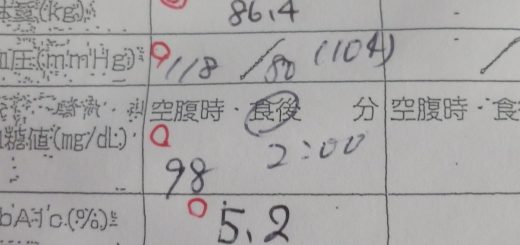 体重(kg) 86.4
血圧(mmHg) 118/80 (104)
空腹時・食後 分 空腹時・食
血糖値(mg/dL) 2:00
98
bA1c(%) 5.2